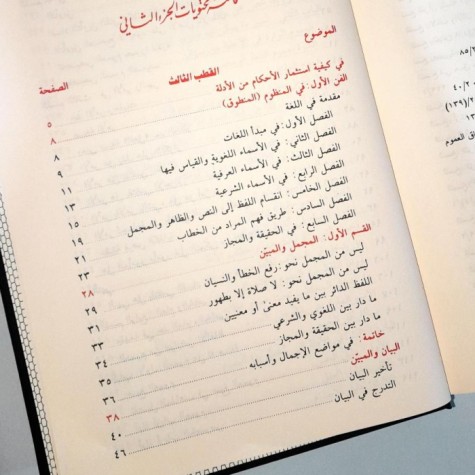 محتويات الجزء الثاني
الموضوع
الصفحة
القطب الثالث
في كيفية استثمار الأحكام من الأدلة ٥
الفن الأول: في المنظوم (المنطوق) ٨
مقدمة في اللغة
الفصل الأول: في مبدأ اللغات ٨
الفصل الثاني: في الأسماء اللغوية والقياس فيها ٩
الفصل الثالث: في الأسماء العرفية ١١
الفصل الرابع: في الأسماء الشرعية ١٣
الفصل الخامس: انقسام اللفظ إلى النص والظاهر والمجمل ١٥
الفصل السادس: طريق فهم المراد من الخطاب ١٩
الفصل السابع: في الحقيقة والمجاز ٢١
القسم الأول: المجمل والمبيّن ٢٣
ليس من المجمل نحو: رفع الخطأ والنسيان ٢٨
ليس من المجمل نحو: لا صلاة إلا بطهور ٢٩
اللفظ الدائر بين ما يفيد معنىً أو معنيين ٣١
ما دار بين اللغوي والشرعي ٣٣
ما دار بين الحقيقة والمجاز ٣٤
خاتمة: في مواضع الإجمال وأسبابه ٣٥
البيان والمبيّن ٣٦
تأخير البيان ٣٨
التدرج في البيان ٤٠
٤٦
٨٥/٢
٤٠/٢٠
(١٣٩)/٢
١٣
اق العموم